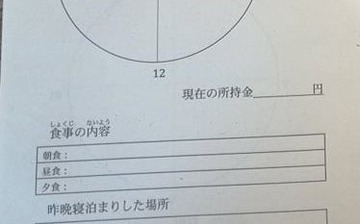 12
現在の所持金＿＿＿＿＿＿円
しょくじ ないよう
食事の内容
朝食：
昼食：
夕食：
昨晩寝泊まりした場所